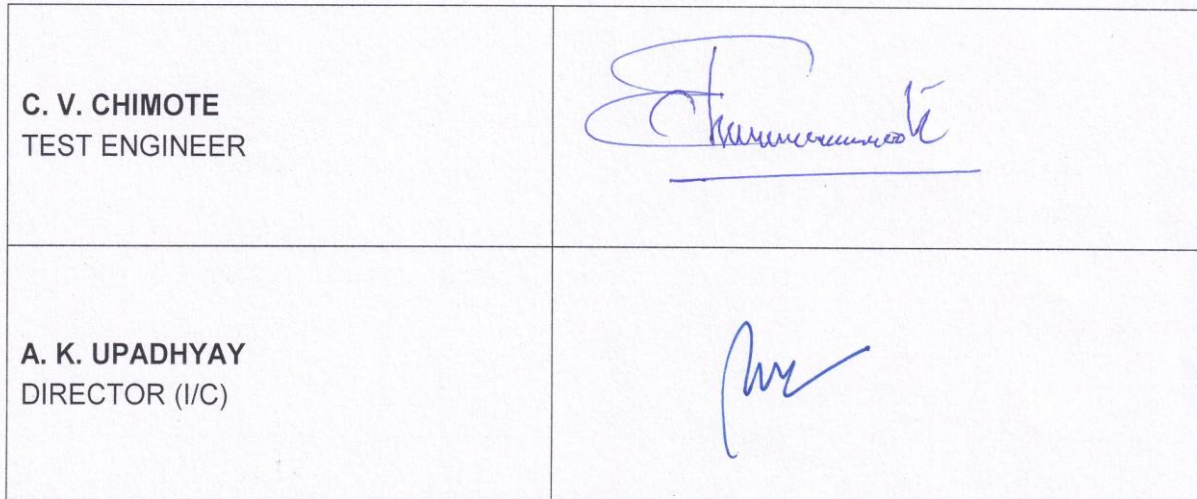 C. V. CHIMOTE
TEST ENGINEER
A. K. UPADHYAY
DIRECTOR (I/C)